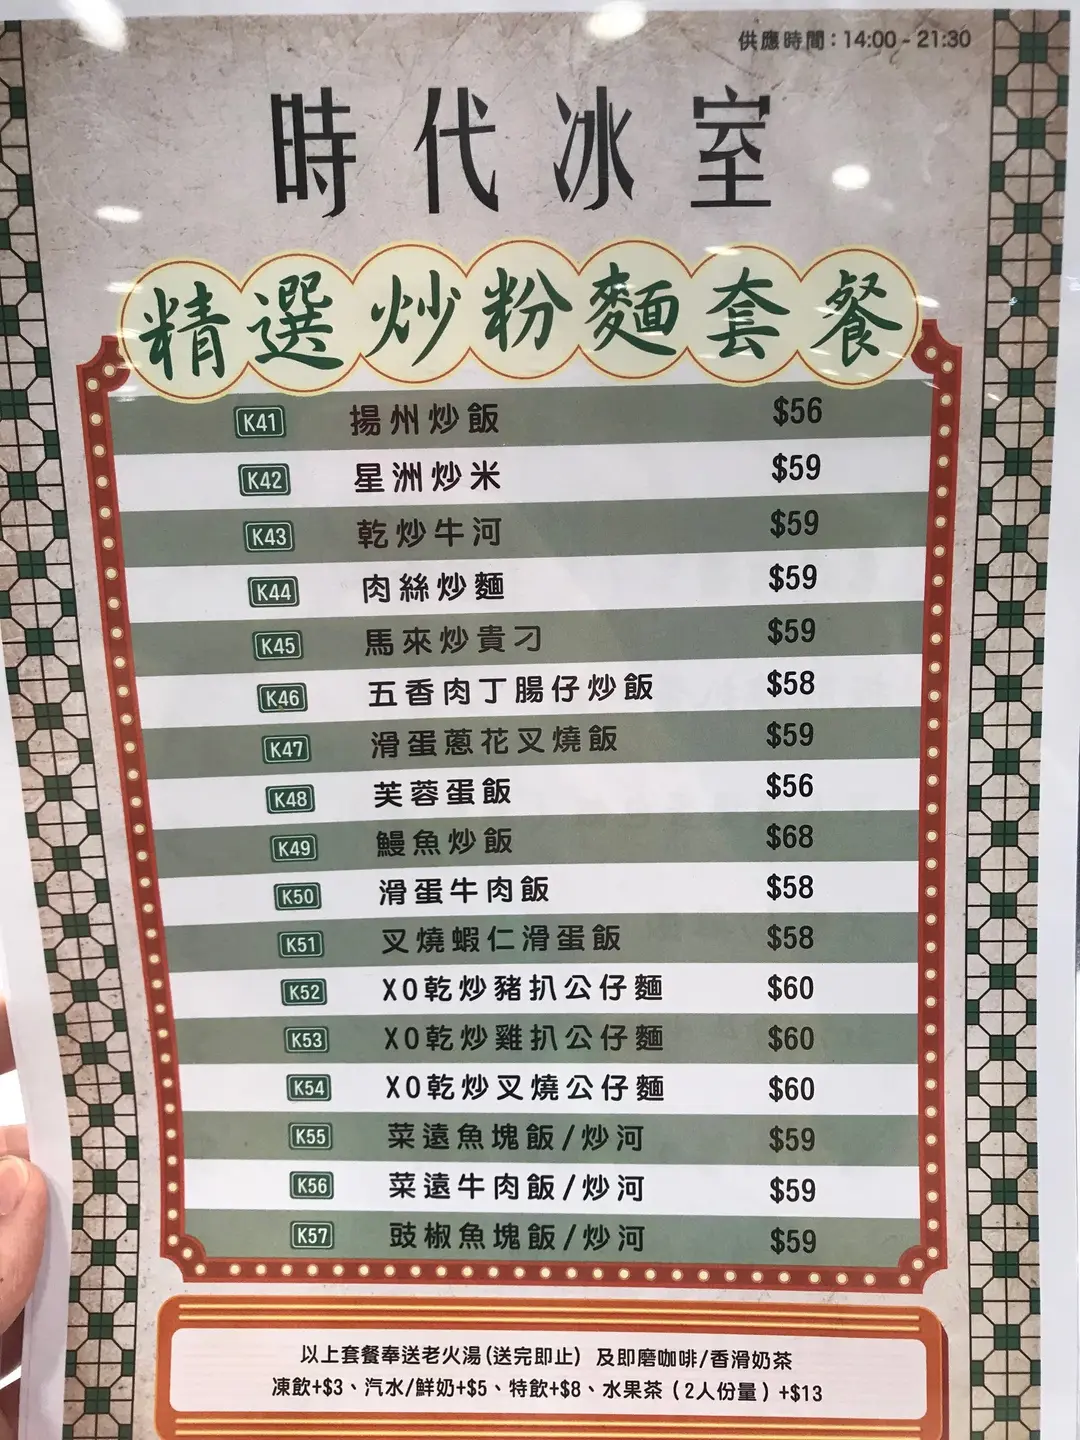 供應時間：14:00 - 21:30
時代冰室
精選炒粉麵套餐
K41 揚州炒飯 $56
K42 星洲炒米 $59
K43 乾炒牛河 $59
K44 肉絲炒麵 $59
K45 馬來炒貴刁 $59
K46 五香肉丁腸仔炒飯 $58
K47 滑蛋蔥花叉燒飯 $59
K48 芙蓉蛋飯 $56
K49 鰻魚炒飯 $68
K50 滑蛋牛肉飯 $58
K51 叉燒蝦仁滑蛋飯 $58
K52 XO乾炒豬扒公仔麵 $60
K53 XO乾炒雞扒公仔麵 $60
K54 XO乾炒叉燒公仔麵 $60
K55 菜遠魚塊飯/炒河 $59
K56 菜遠牛肉飯/炒河 $59
K57 豉椒魚塊飯/炒河 $59
以上套餐奉送老火湯(送完即止) 及即磨咖啡/香滑奶茶
凍飲+$3、汽水/鮮奶+$5、特飲+$8、水果茶（2人份量）+$13